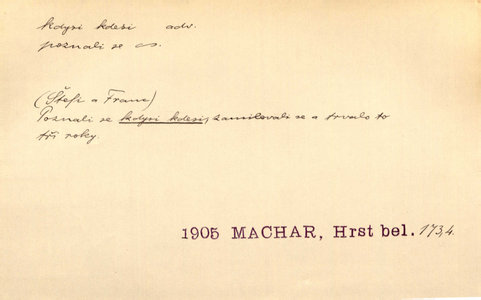 kdysi kdesi adv.
poznali se os.
(Štefi a Franc)
Poznali se kdysi kdesi, zamilovali se a trvalo to
tři roky.
1905 MACHAR, Hrst bel. 173,4.